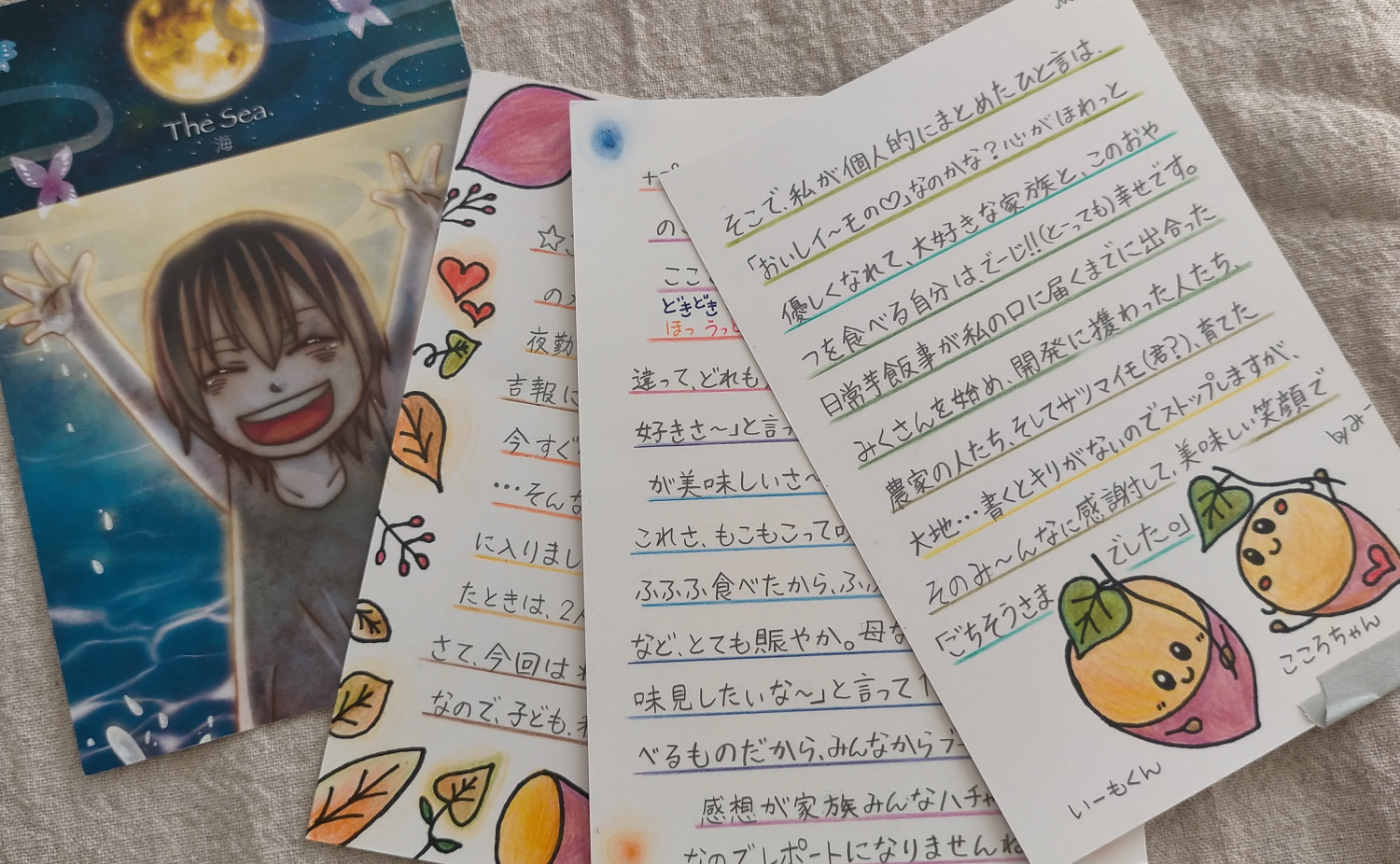 The Sea.
海
☆こ
の
夜勤
吉報に
今すぐ
…そんな
に入りまし
たときは、2人
さて、今回は
なので、子ども、
のこ
ここ
どきどき
ほっ うっ
違って、どれも
好きさ～」と言っ
が美味しいさ～
これさ、もこもこって
ふふふ食べたから、ふふ
など、とても賑やか。母な
味見したいな～」と言って
べるものだから、みんなからブー
感想が家族みんなハチャ
なのでレポートになりませんね
そこで、私が個人的にまとめたひと言は、
「おいしイ～モの♡」なのかな?心がほわっと
優しくなれて、大好きな家族と、このおや
つを食べる自分は、でーじ!!(とっても)幸せです。
日常芋飯事が私の口に届くまでに出合った
みくさんを始め、開発に携わった人たち、
農家の人たち、そしてサツマイモ(君?)、育てた
大地…書くとキリがないのでストップしますが、
そのみ～んなに感謝して、美味しい笑顔で
「ごちそうさま でした。」
byみー
こころちゃん
いーもくん